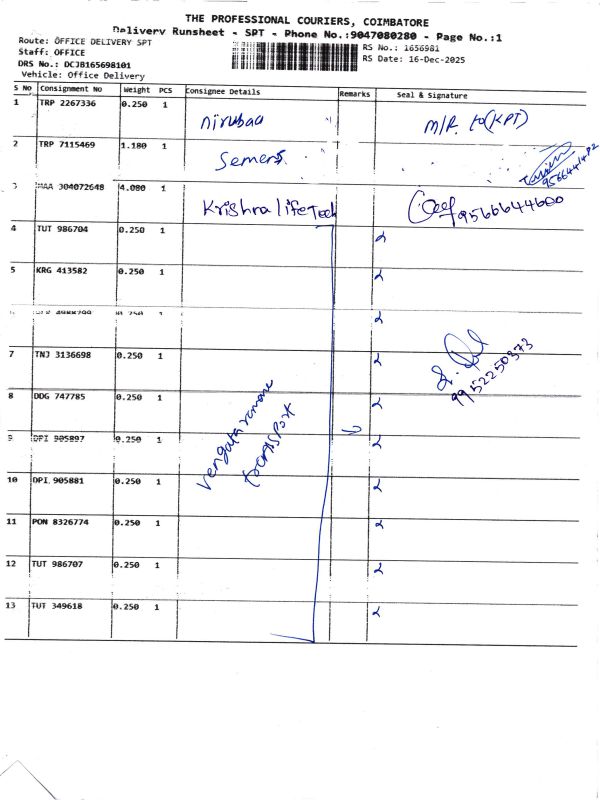 THE PROFESSIONAL COURIERS, COIMBATORE
Delivery Runsheet - SPT - Phone No.:9047080280 - Page No.:1
Route: OFFICE DELIVERY SPT
RS No.: 1656981
Staff: OFFICE
RS Date: 16-Dec-2025
DRS No.: DCJB165698101
Vehicle: Office Delivery
S No Consignment No Weight PCS Consignee Details Remarks Seal & Signature
1 TRP 2267336 0.250 1 M/R. to(KPT)
2 TRP 7115469 1.180 1
3 MAA 304072648 4.080 1 Krishna life Tech 9566644600
4 TUT 986704 0.250 1
5 KRG 413582 0.250 1
7 TNJ 3136698 0.250 1
9952250373
8 DDG 747785 0.250 1
9 DPI 905897 0.250 1
vengataramane
transport
10 DPI 905881 0.250 1
11 PON 8326774 0.250 1
12 TUT 986707 0.250 1
13 TUT 349618 0.250 1